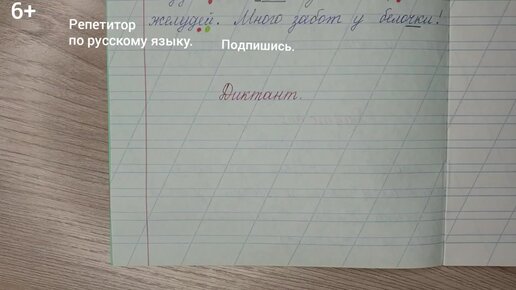 6+
Репетитор
по русскому языку.
Подпишись.
желудей. Много забот у белочки!
Диктант.